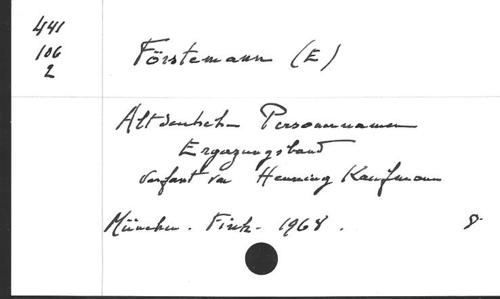 441
106
2
Förstemann (E)
Altdeutsche Personennamen
Ergazungsband
verfasst von Henning Kaufmann
München. Fink. 1968. 8°